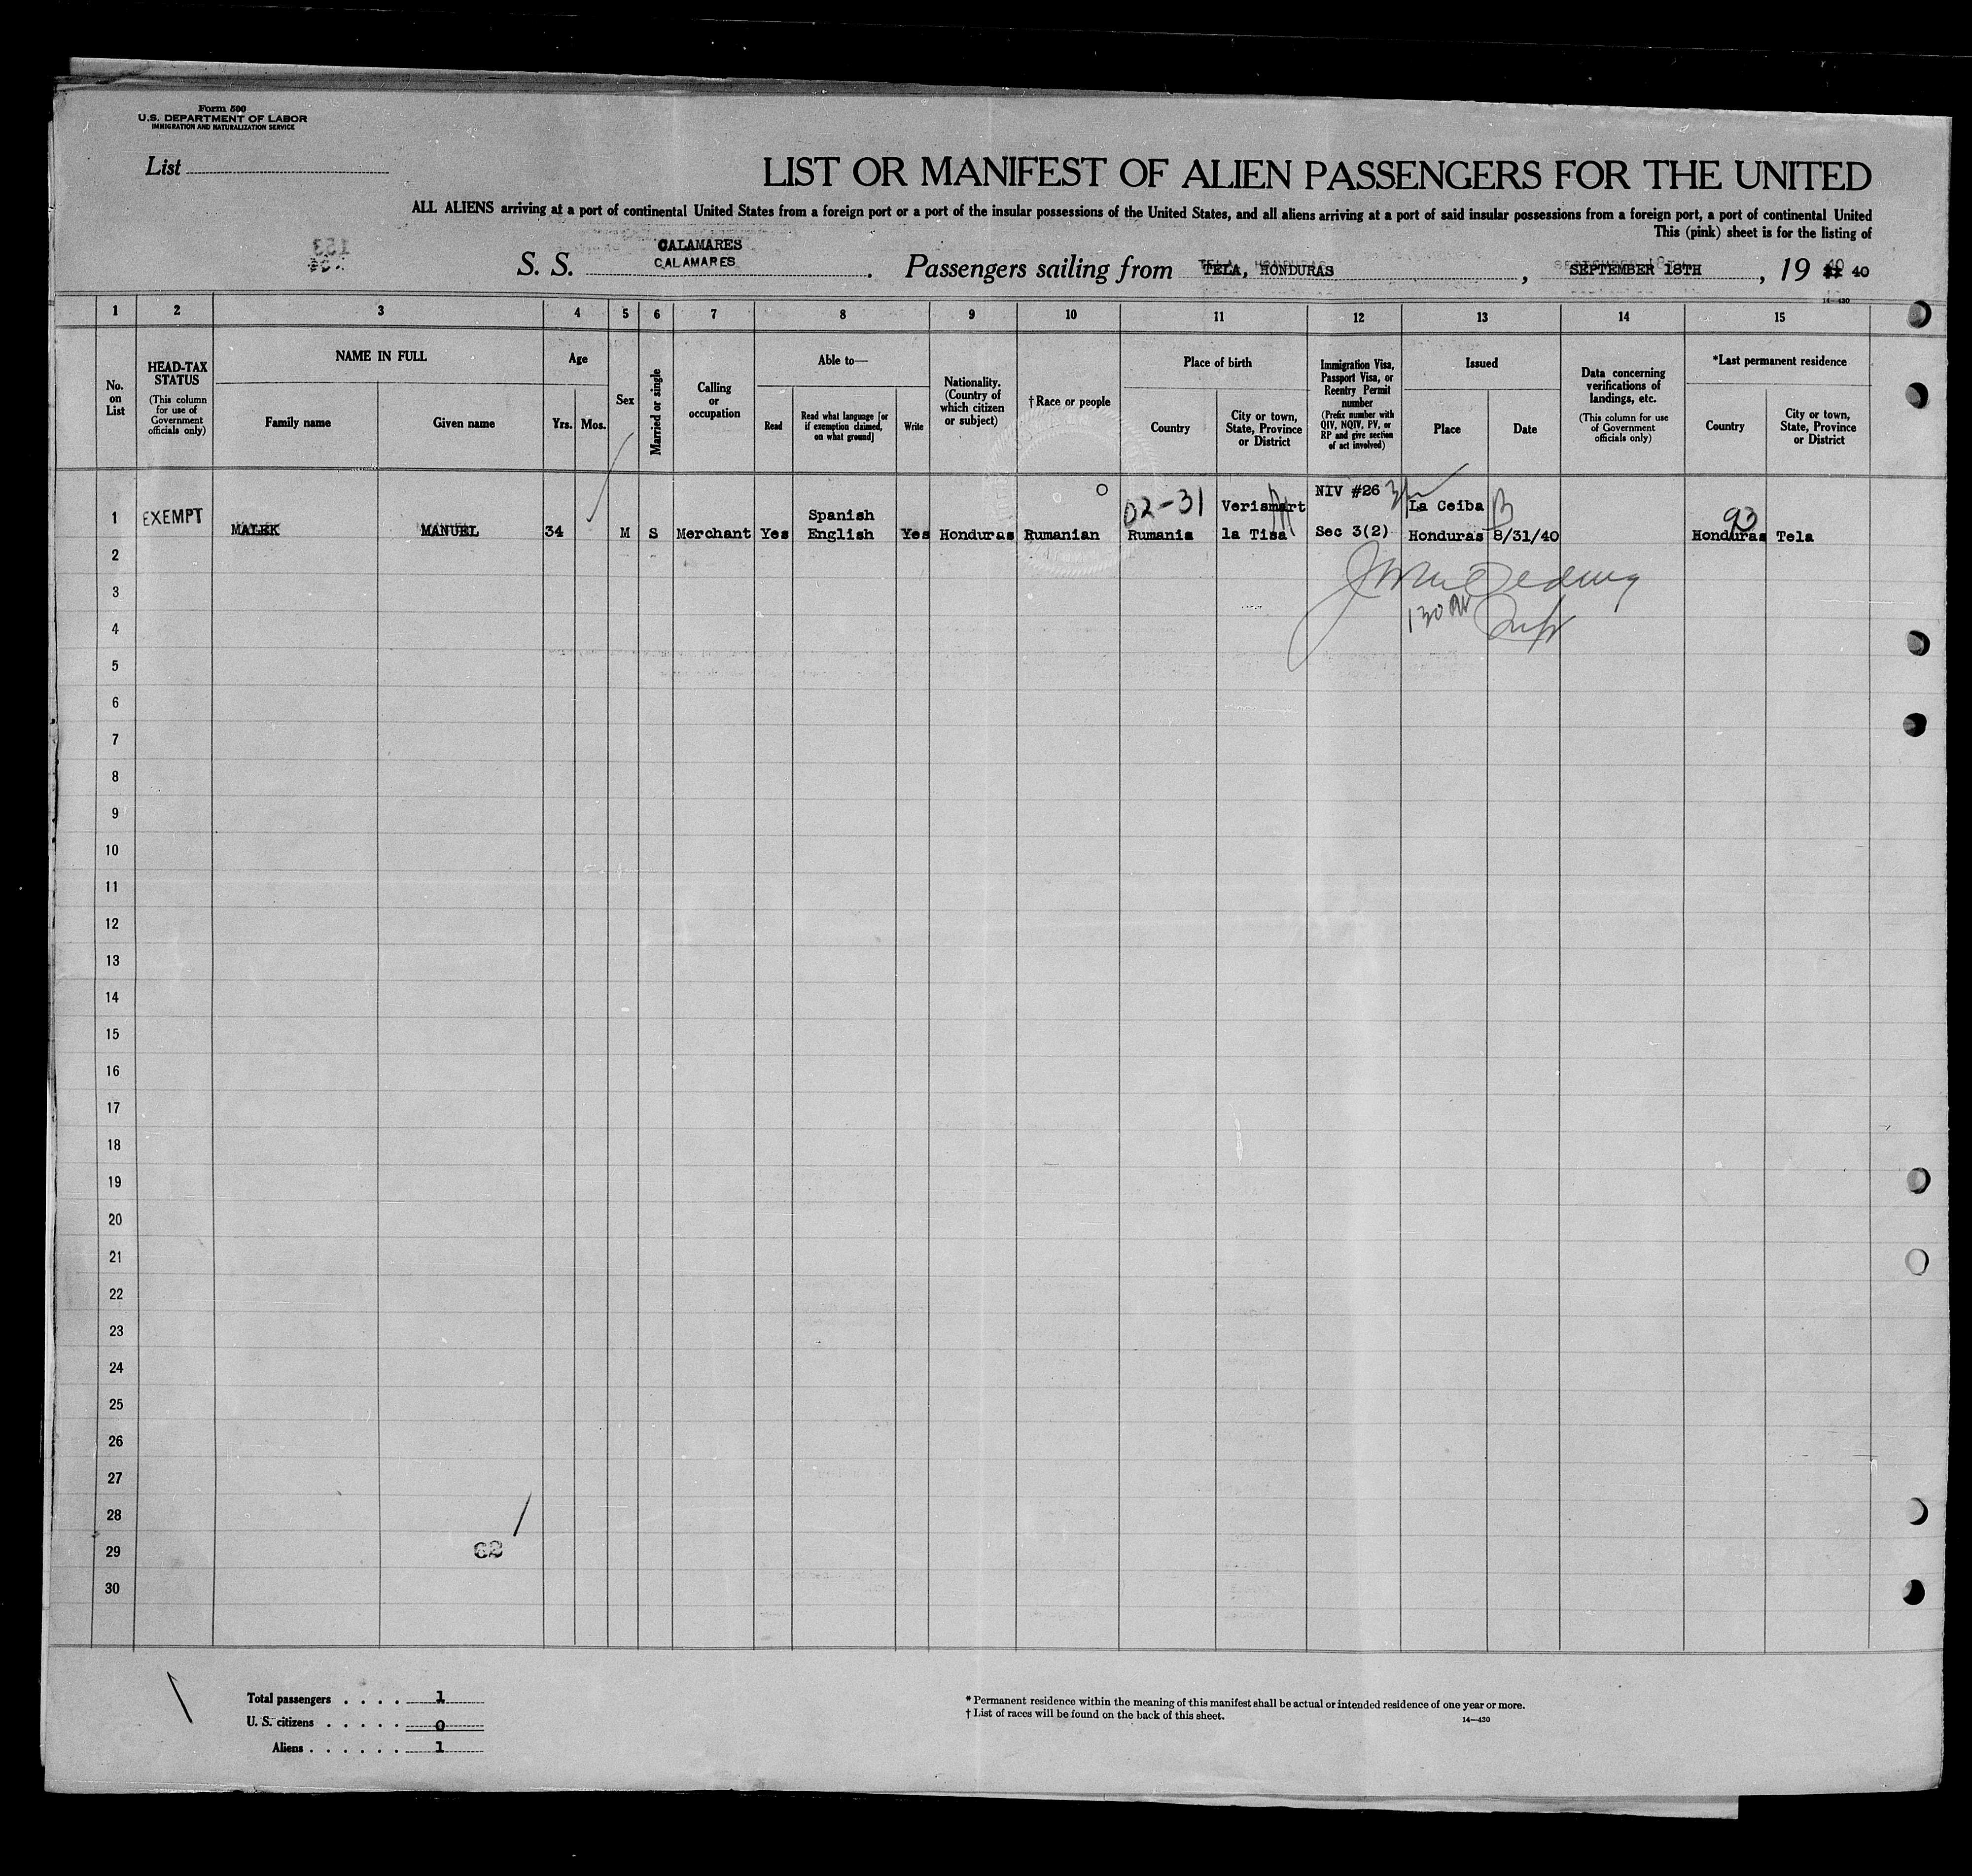 Form 500
U.S. DEPARTMENT OF LABOR
IMMIGRATION AND NATURALIZATION SERVICE
List
LIST OR MANIFEST OF ALIEN PASSENGERS FOR THE UNITED
ALL ALIENS arriving at a port of continental United States from a foreign port or a port of the insular possessions of the United States, and all aliens arriving at a port of said insular possessions from a foreign port, a port of continental United
This (pink) sheet is for the listing of
153
CALAMARES
S. S. CALAMARES. Passengers sailing from TELA, HONDURAS, SEPTEMBER 18TH, 19 40
14—430
1 2 3 4 5 6 7 8 9 10 11 12 13 14 15
No. on List
HEAD-TAX STATUS
(This column for use of Government officials only)
NAME IN FULL
Family name
Given name
Age
Yrs. Mos.
Sex
Married or single
Calling or occupation
Able to—
Read
Read what language [or if exemption claimed, on what ground]
Write
Nationality. (Country of which citizen or subject)
† Race or people
Place of birth
Country
City or town, State, Province or District
Immigration Visa, Passport Visa, or Reentry Permit number
(Prefix number with QIV, NQIV, PV, or RP and give section of act involved)
Issued
Place
Date
Data concerning verifications of landings, etc.
(This column for use of Government officials only)
*Last permanent residence
Country
City or town, State, Province or District
1 EXEMPT MALEK MANUEL 34 M S Merchant Yes Spanish English Yes Honduras Rumanian 02-31 Rumania Verismart la Tisa NIV #26 Sec 3(2) La Ceiba Honduras 8/31/40 93 Honduras Tela
2
3
4 130
5
6
7
8
9
10
11
12
13
14
15
16
17
18
19
20
21
22
23
24
25
26
27
28
29
30
62
Total passengers . . . . 1
U. S. citizens . . . . . 0
Aliens . . . . . . 1
* Permanent residence within the meaning of this manifest shall be actual or intended residence of one year or more.
† List of races will be found on the back of this sheet.
14—430